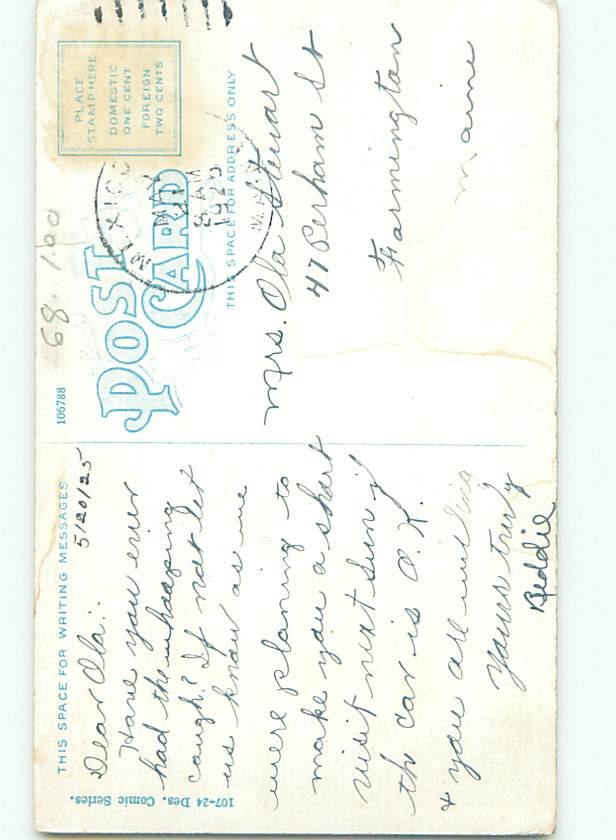 THIS SPACE FOR WRITING MESSAGES
5/20/25
Dear Ola:-
Have you ever
had the whooping
cough? If not let
us know as we
were planing to
make you a short
visit next Sun if
th car is O.K.
& you are willing
Yours truly
Beddie
107-24 Des. Comic Series.
106788
68 1.00
POST CARD
PLACE
STAMP HERE
DOMESTIC
ONE CENT
FOREIGN
TWO CENTS
MEXICO
MAY
21
8 AM
1925
THIS SPACE FOR ADDRESS ONLY
Mrs. Ola Stewart
47 Perham St
Farmington
Maine